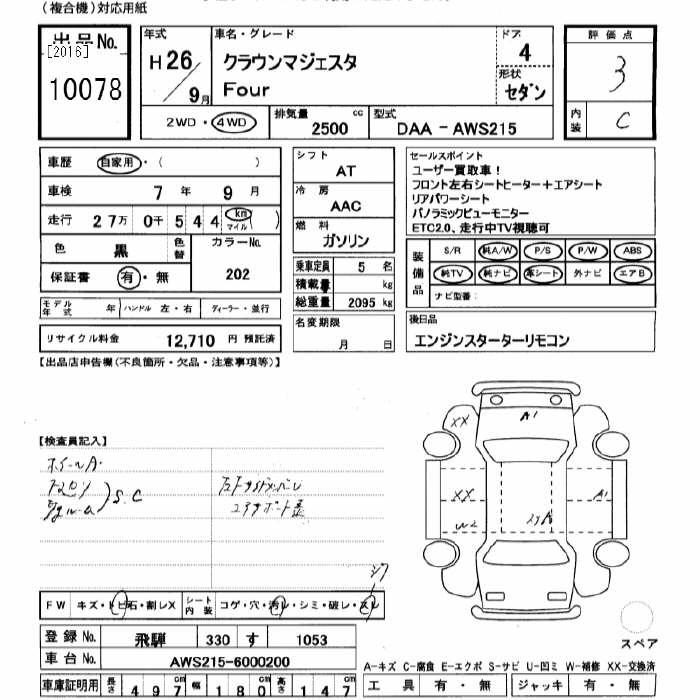 (複合機)対応用紙
出品No.
[2016]
10078
年式
H26/9月
車名・グレード
クラウンマジェスタ
Four
ドア
4
形状
セダン
評価点
3
内装
C
2WD・4WD
排気量
2500 cc
型式
DAA - AWS215
車歴 自家用・( )
車検 7 年 9 月
走行 27万 0千 5 4 4 km マイル
色 黒 色替
カラーNo.
202
保証書 有・無
モデル年式 年 ハンドル 左・右 ディーラー・並行
リサイクル料金 12,710 円 預託済
シフト
AT
冷房
AAC
燃料
ガソリン
乗車定員 5 名
積載量 kg
総重量 2095 kg
名変期限
月 日
セールスポイント
ユーザー買取車!
フロント左右シートヒーター+エアシート
リアパワーシート
パノラミックビューモニター
ETC2.0、走行中TV視聴可
装備品
S/R 純A/W P/S P/W ABS
純TV 純ナビ 革シート 外ナビ エアB
ナビ型番:
後日品
エンジンスターターリモコン
【出品店申告欄(不良箇所・欠品・注意事項等)】
【検査員記入】
ホイールA.
S.C
XX
A1
XX
A1
W2
FW キズ・トビ石・割レX
シート内装 コゲ・穴・汚レ・シミ・破レ・スレ
シワ
スペア
登録No. 飛騨 330 す 1053
車台No. AWS215-6000200
車庫証明用 長さ 497cm 幅 180cm 高さ 147cm
A-キズ C-腐食 E-エクボ S-サビ U-凹ミ W-補修 XX-交換済
工具 有・無 ジャッキ 有・無